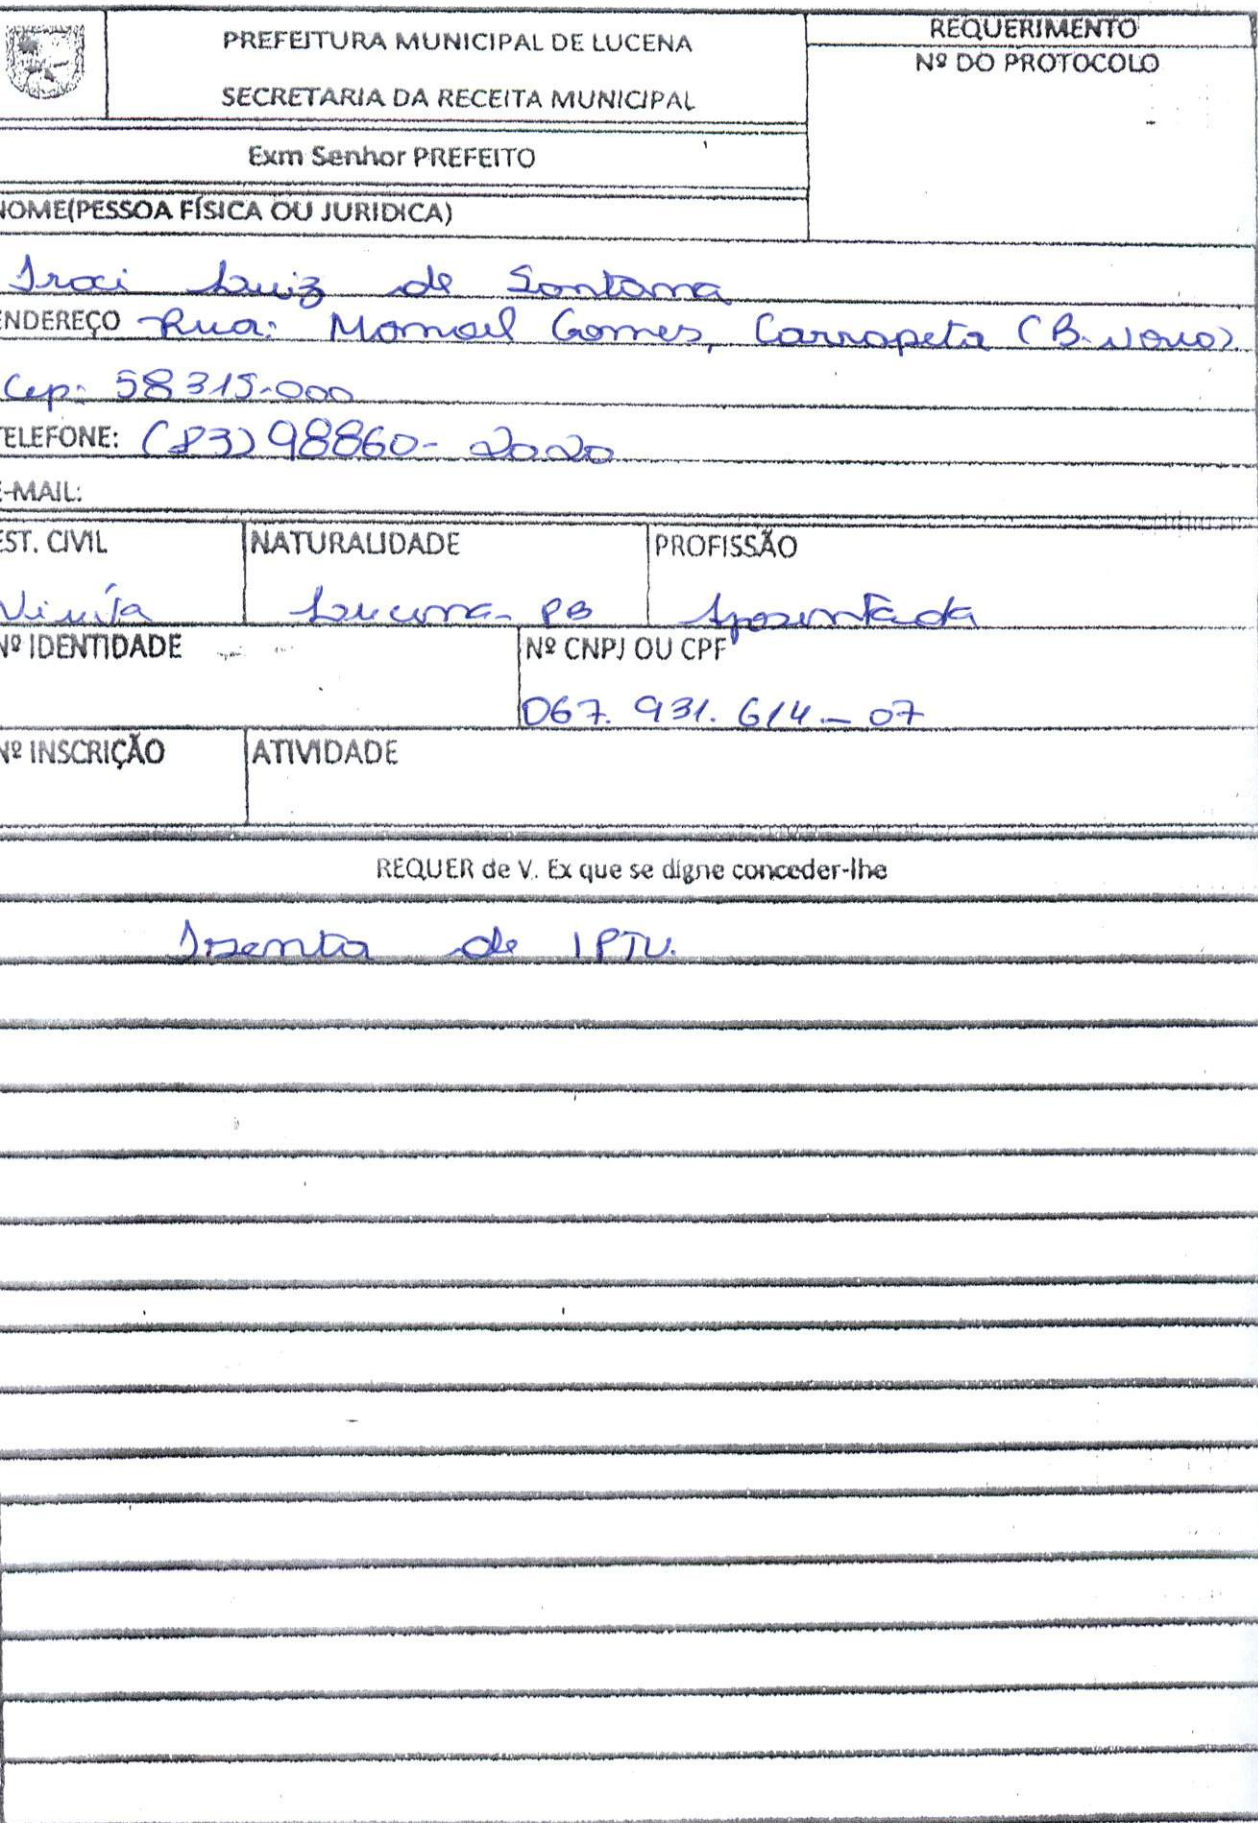 PREFEITURA MUNICIPAL DE LUCENA
SECRETARIA DA RECEITA MUNICIPAL
REQUERIMENTO
Nº DO PROTOCOLO
Exm Senhor PREFEITO
NOME(PESSOA FÍSICA OU JURIDICA)
Iraci Luiz de Santana
ENDEREÇO Rua: Manoel Gomes, Carrapeta (B. Novo)
Cep: 58315-000
TELEFONE: (83) 98860-2020
E-MAIL:
EST. CIVIL NATURALIDADE PROFISSÃO
Viuúa Lucena-PB Aposentada
Nº IDENTIDADE Nº CNPJ OU CPF
067.931.614-07
Nº INSCRIÇÃO ATIVIDADE
REQUER de V. Ex que se digne conceder-lhe
Isenta de IPTU.